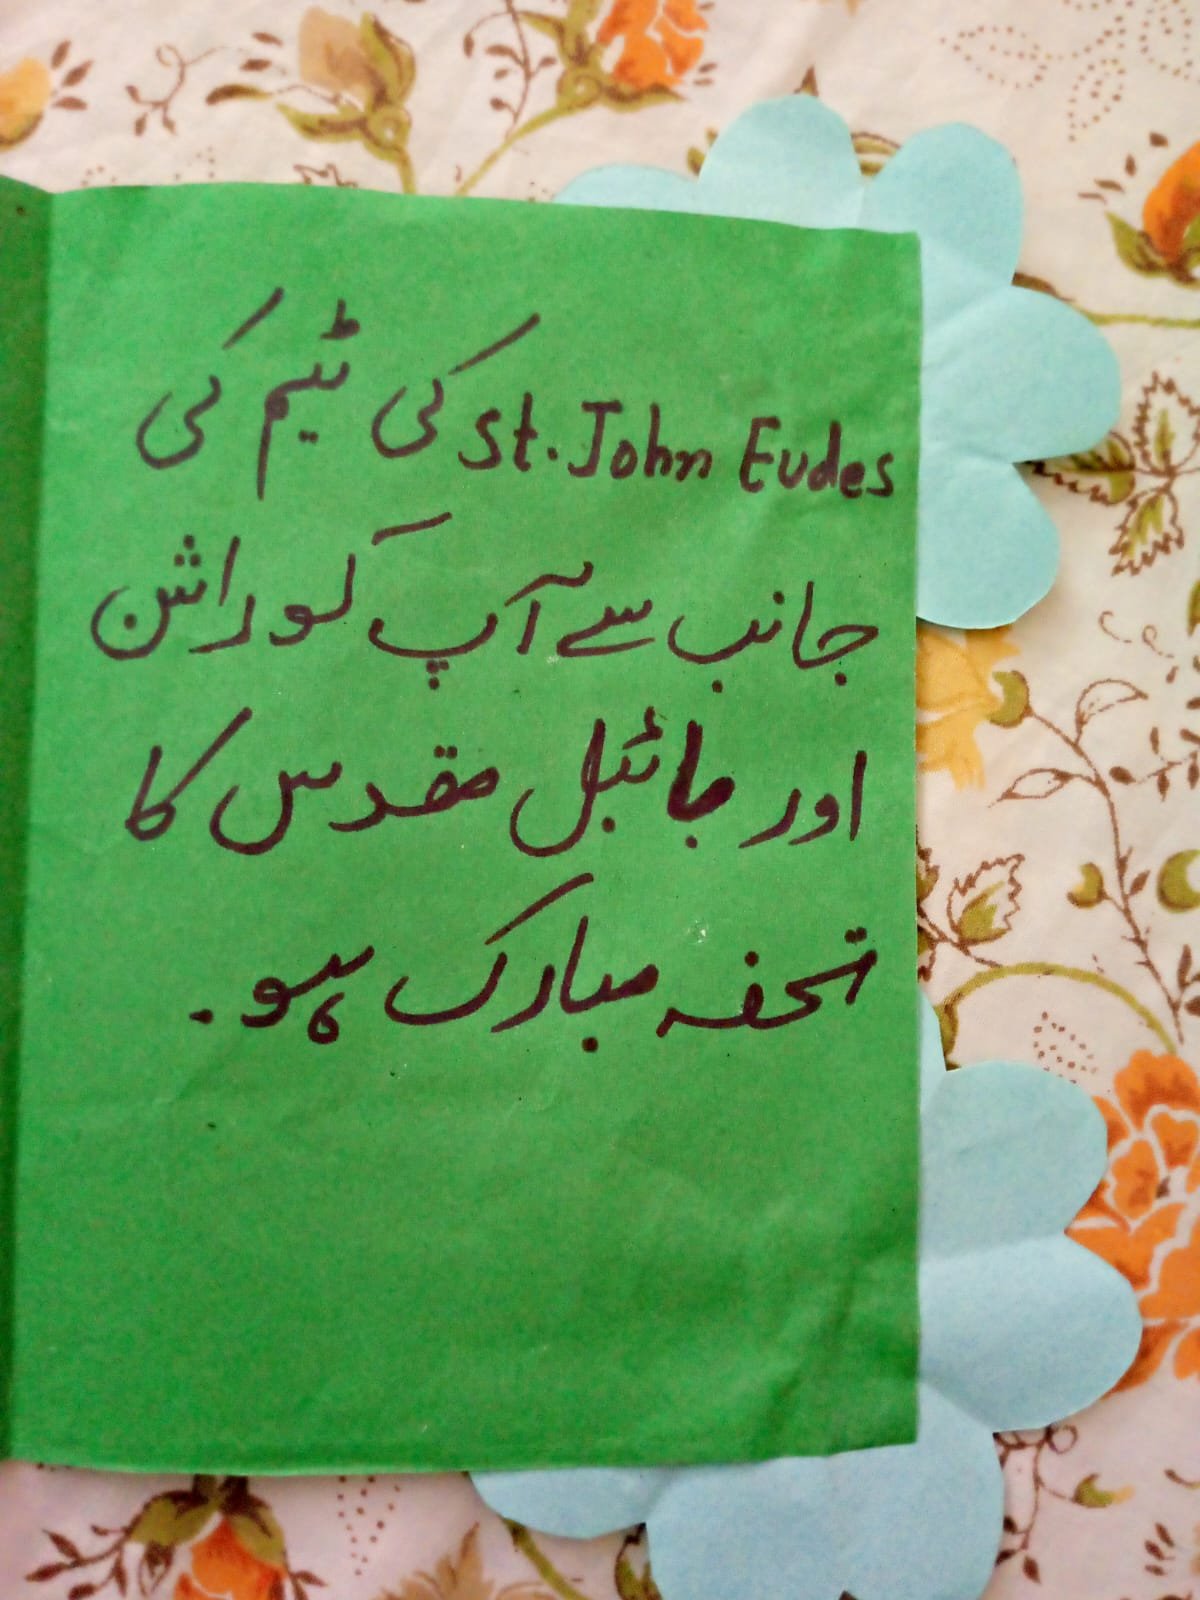 St. John Eudes کی ٹیم کی
جانب سے آپ کو راشن
اور بائبل مقدس کا
تحفہ مبارک ہو۔